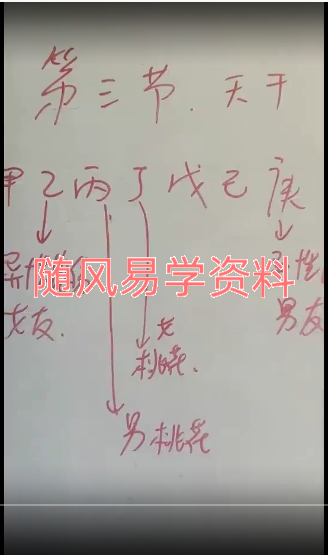 第三节.天干
甲乙丙丁戊己庚
异性
随风易学资料
女友.
男友
女
桃花.
男桃花